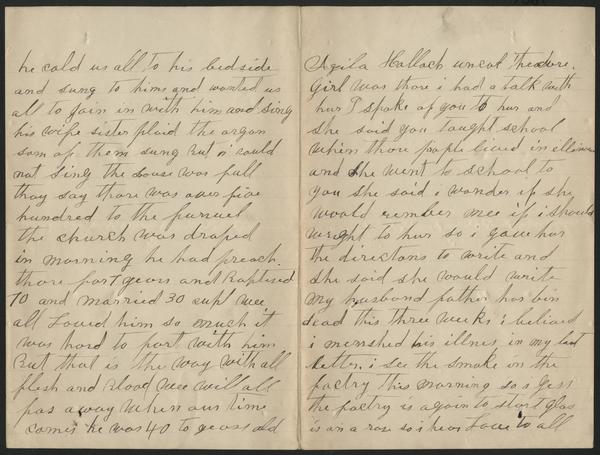 he cald us all to his bedside
and sung to hims and wanted us
all to join in with him and sing
his wife sister plaid the organ
som of them sung but i could
not sing the house was full
thay say thare was over five
hundred to the funuel
the church was draped
in morning he had preach
thare fort years and Baptised
70 and married 30 cupl wee
all Loved him so much it
was hard to part with him
But that is the way with all
flesh and Blood wee will all
pas away when our time
comes he was 40 to years old
Hallach uncal Theadore.
Girl was thare i had a talk with
hur I spoke of you to hur and
She said you taught school
when thare people lived in
and She went to school to
you she said i wonder if she
would rember mee if i should
wright to hur so i gave hur
the directons to write and
She said she would write
my husbond father has bin
dead this three weeks i beliavd
i menshed his illnes in my last
letter. i see the smoke in the
factry this morning so i gess
the factry is again to start glas
is in a rose so i hear Love to all